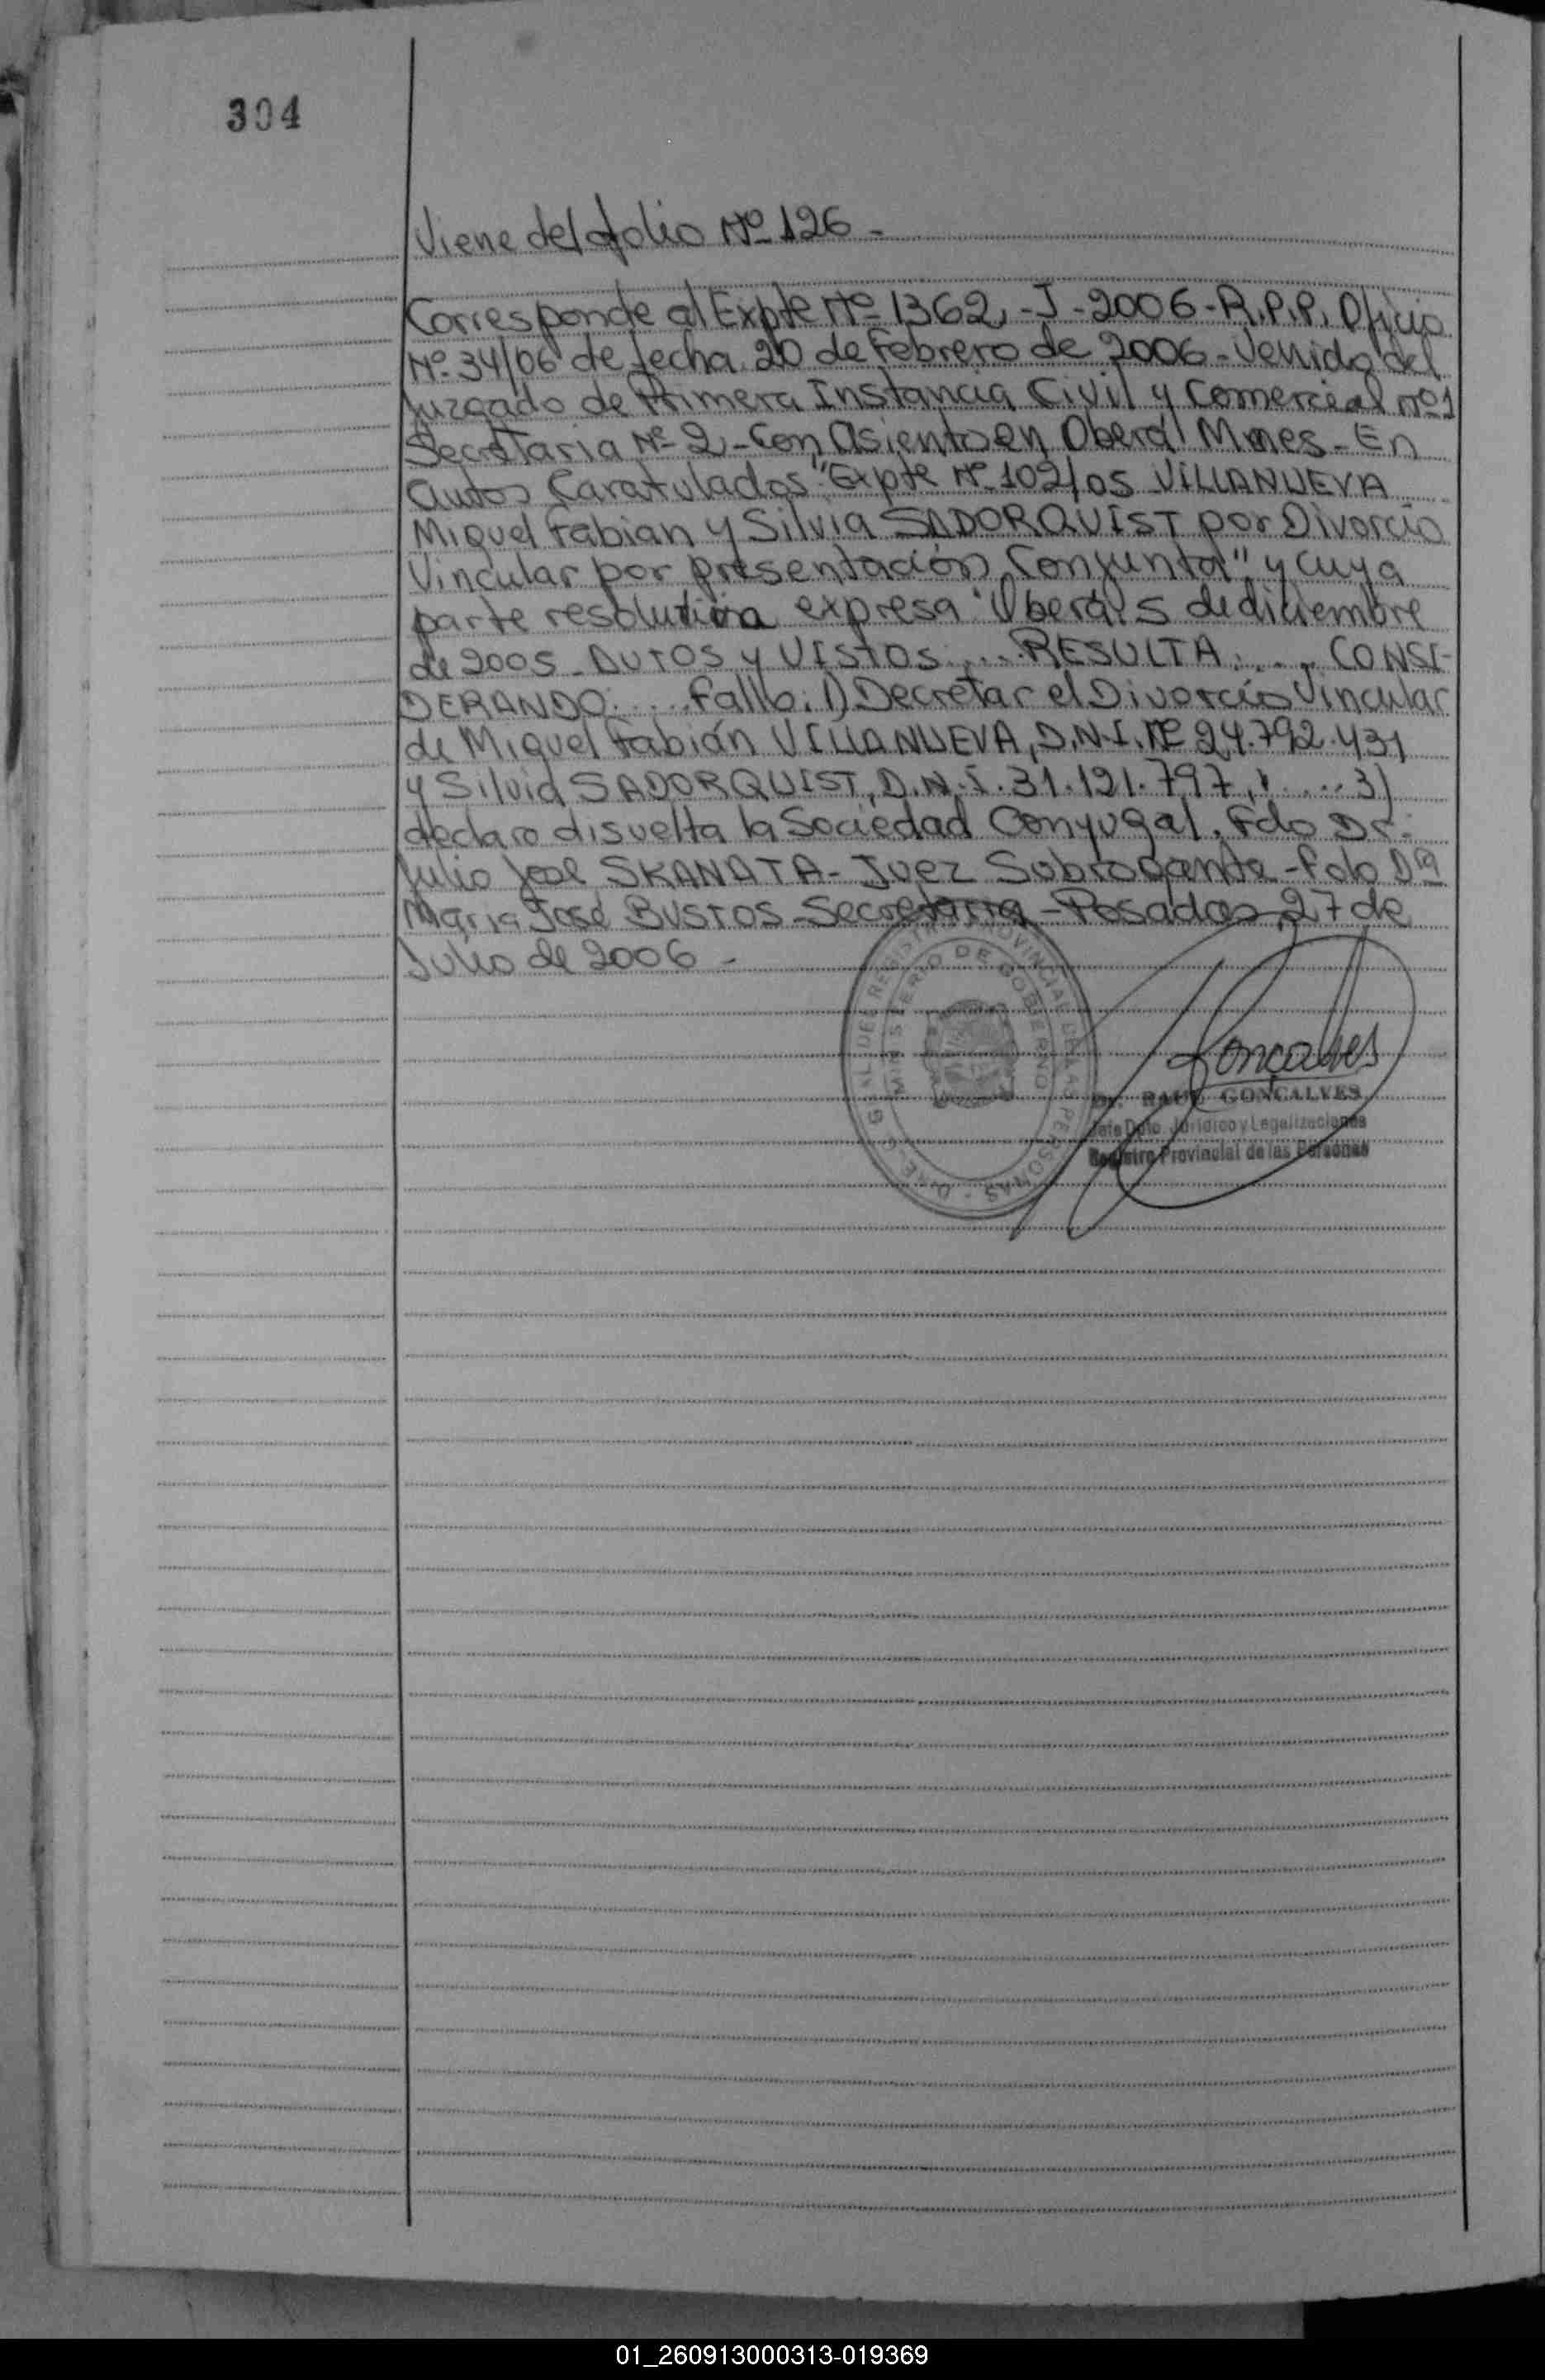 304
Viene del folio Nº 126 -
Corresponde al Expte Nº 1362 - J - 2006 - R.P.P. Oficio
Nº 34/06 de fecha 20 de Febrero de 2006 - Venido del
Juzgado de Primera Instancia Civil y Comercial nº 1
Secretaria Nº 2 - Con asiento en Oberá Mnes - En
autos Caratulados "Expte Nº 102/05 VILLANUEVA
Miguel Fabian y Silvia SADORQUIST por Divorcio
Vincular por presentación Conjunta" y cuya
parte resolutiva expresa "Oberá, 5 de diciembre
de 2005 - AUTOS y VISTOS .... RESULTA: .... CONSI-
DERANDO: .... Fallo: 1) Decretar el Divorcio Vincular
de Miguel Fabián VILLANUEVA, D.N.I. Nº 24.792.431
y Silvia SADORQUIST, D.N.I. 31.121.797, .... 3)
declaro disuelta la Sociedad Conyugal. Fdo Dr.
Julio José SKANATA - Juez Subrogante - Fdo Dra
Maria José BUSTOS - Secretaria - Posadas 27 de
Julio de 2006 -
GRAL DEL REGISTRO PROVINCIAL DE LAS PERSONAS
MINISTERIO DE GOBIERNO
Goncalves
Dr. RAUL GONCALVES
Jefe Dpto. Jurídico y Legalizaciones
Registro Provincial de las Personas
01_260913000313-019369